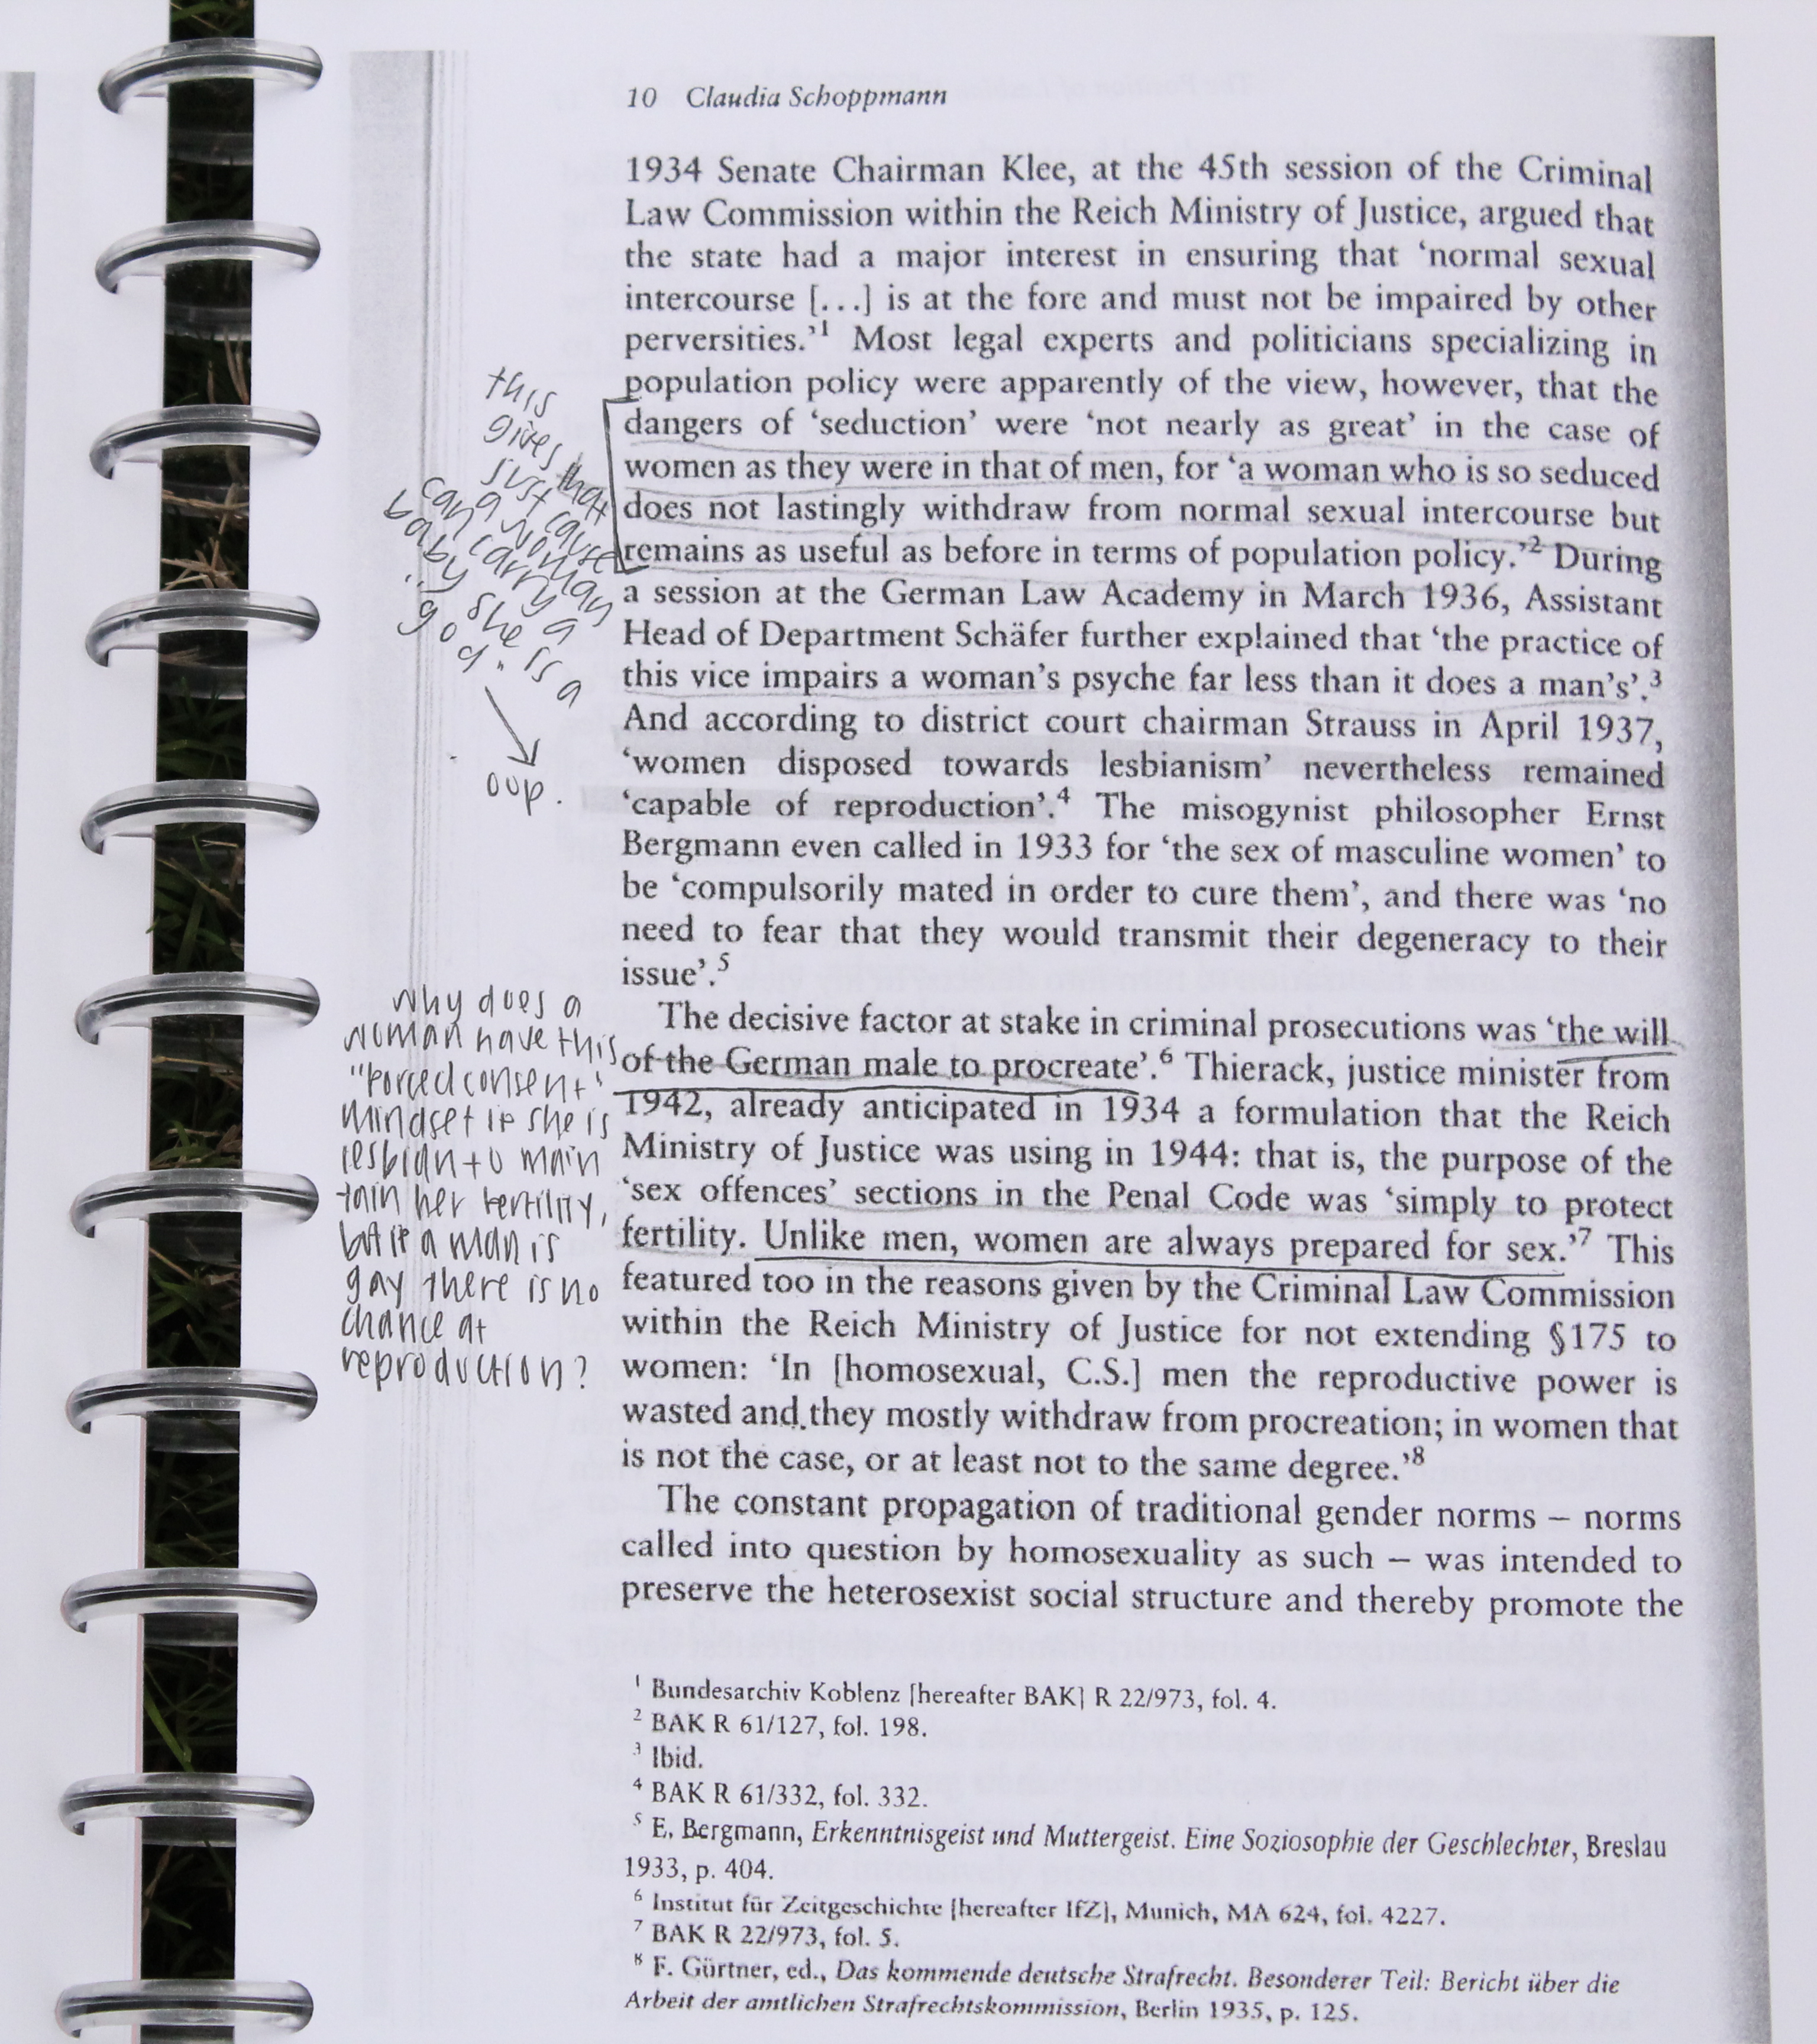 10 Claudia Schoppmann
1934 Senate Chairman Klee, at the 45th session of the Criminal
Law Commission within the Reich Ministry of Justice, argued that
the state had a major interest in ensuring that ‘normal sexual
intercourse [...] is at the fore and must not be impaired by other
perversities.’1 Most legal experts and politicians specializing in
population policy were apparently of the view, however, that the
dangers of ‘seduction’ were ‘not nearly as great’ in the case of
women as they were in that of men, for ‘a woman who is so seduced
does not lastingly withdraw from normal sexual intercourse but
remains as useful as before in terms of population policy.’2 During
a session at the German Law Academy in March 1936, Assistant
Head of Department Schäfer further explained that ‘the practice of
this vice impairs a woman’s psyche far less than it does a man’s’.3
And according to district court chairman Strauss in April 1937,
‘women disposed towards lesbianism’ nevertheless remained
‘capable of reproduction’.4 The misogynist philosopher Ernst
Bergmann even called in 1933 for ‘the sex of masculine women’ to
be ‘compulsorily mated in order to cure them’, and there was ‘no
need to fear that they would transmit their degeneracy to their
issue’.5
The decisive factor at stake in criminal prosecutions was ‘the will
of the German male to procreate’.6 Thierack, justice minister from
1942, already anticipated in 1934 a formulation that the Reich
Ministry of Justice was using in 1944: that is, the purpose of the
‘sex offences’ sections in the Penal Code was ‘simply to protect
fertility. Unlike men, women are always prepared for sex.’7 This
featured too in the reasons given by the Criminal Law Commission
within the Reich Ministry of Justice for not extending §175 to
women: ‘In [homosexual, C.S.] men the reproductive power is
wasted and they mostly withdraw from procreation; in women that
is not the case, or at least not to the same degree.’8
The constant propagation of traditional gender norms – norms
called into question by homosexuality as such – was intended to
preserve the heterosexist social structure and thereby promote the
1 Bundesarchiv Koblenz [hereafter BAK] R 22/973, fol. 4.
2 BAK R 61/127, fol. 198.
3 Ibid.
4 BAK R 61/332, fol. 332.
5 E. Bergmann, Erkenntnisgeist und Muttergeist. Eine Soziosophie der Geschlechter, Breslau
1933, p. 404.
6 Institut für Zeitgeschichte [hereafter IfZ], Munich, MA 624, fol. 4227.
7 BAK R 22/973, fol. 5.
8 F. Gürtner, ed., Das kommende deutsche Strafrecht. Besonderer Teil: Bericht über die
Arbeit der amtlichen Strafrechtskommission, Berlin 1935, p. 125.
this
gives that
just cause
a woman
can carry a
baby she is a
"god"
oup.
why does a
woman have this
"forced consent"
mindset if she is
lesbian to main
tain her fertility,
but if a man is
gay there is no
chance at
reproduction?